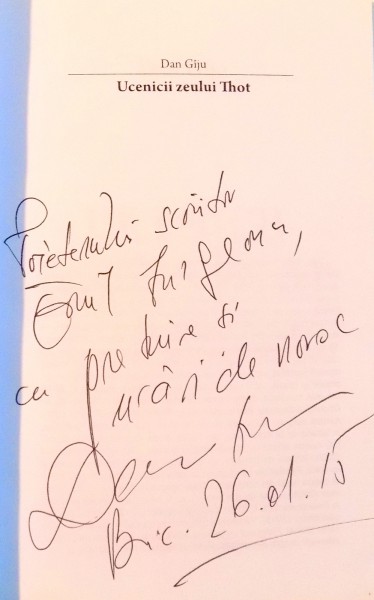 Dan Giju
Ucenicii zeului Thot
Prietenului scriitor
Emil
cu prețuire și
urări de noroc
Dan
Buc. 26.01.15